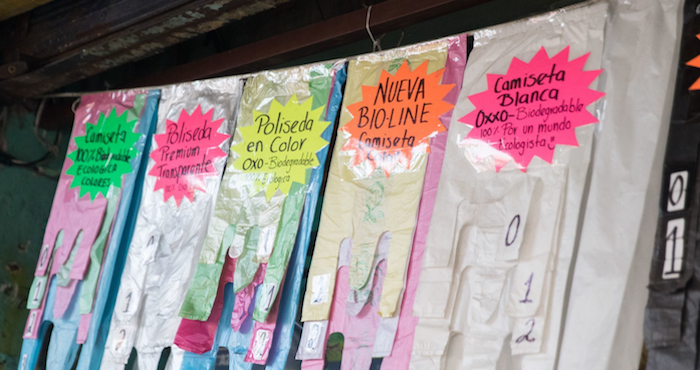 Camiseta
100% Biodegradable
Ecologica
COLORES
Poliseda
Premium
Transparente
Poliseda
en Color
OXO-Biodegradable
NUEVA
BIO-LINE
Camiseta
Camiseta
Blanca
OXXO-Biodegradable
100% Por un mundo
Ecologista
0
1
1
2
1
2
0
1
2
0
1